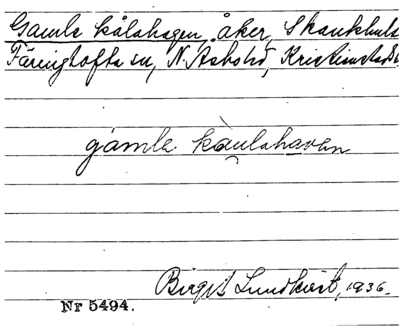 Gamla kålahagen, åker, Skankhult
Färingtofta sn, N. Åsbohd, Kristianstads
gamla kaulahaven
Birgit Lundkvist, 1936.
Nr 5494.